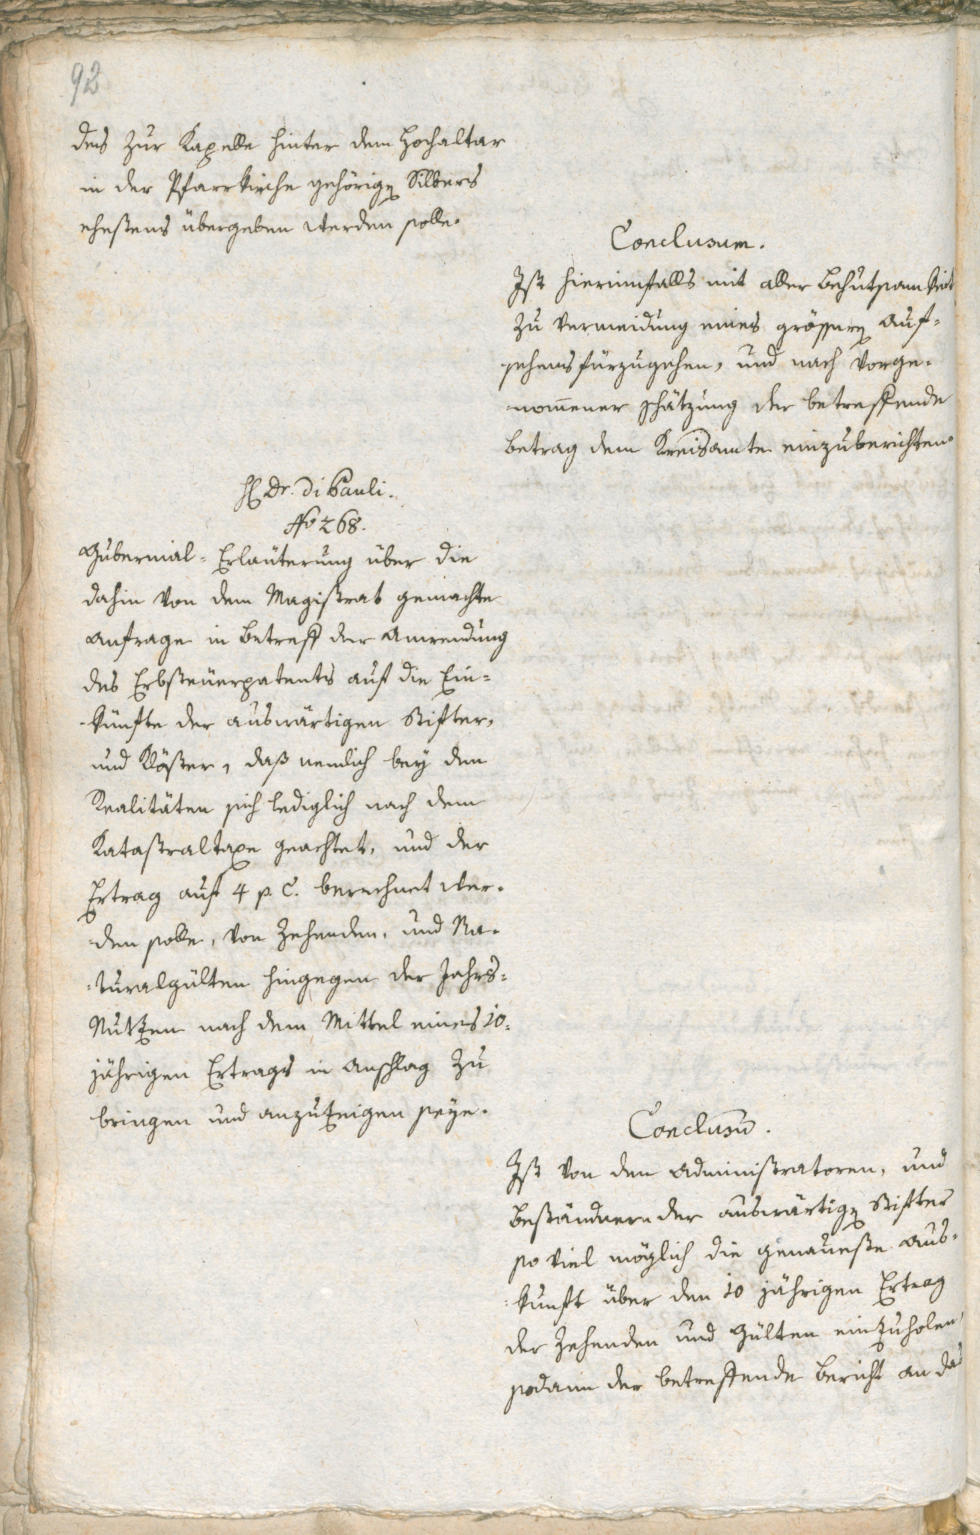 92
des zur Kapelle hinter dem Hochaltar
in der Pfarrkirche gehörigen Silbers
ehestens übergeben werden solle.
Conclusum.
Ist hierinnfalls mit aller Behutsamkeit
zu Vermeidung eines grössern Auf-
sehens fürzugehen, und nach vorge-
nom̅ener Schätzung der betreffende
Betrag dem Kreisamte einzuberichten.
H Dr. Di Pauli.
No 268.
Gubernial-Erläuterung über die
dahin von dem Magistrat gemachte
Anfrage in Betreff der Anwendung
des Erbsteuerpatents auf die Ein-
künfte der auswärtigen Stifter,
und Klöster, daß nemlich bey den
Realitäten sich lediglich nach dem
Katastraltaxe geachtet, und der
Ertrag auf 4 p. C. berechnet wer-
den solle, von Zehenden, und Na-
turalgülten hingegen der Jahrs-
Nutzen nach dem Mittel eines 10-
jährigen Ertrags in Anschlag zu
bringen und anzuzeigen seye.
Conclusu̅.
Ist von den Administratoren, und
Beständnern der auswärtigen Stifter
so viel möglich die genaueste Aus-
kunft über den 10 jährigen Ertrag
der Zehenden und Gülten einzuholen,
sodann der betreffende Bericht an das